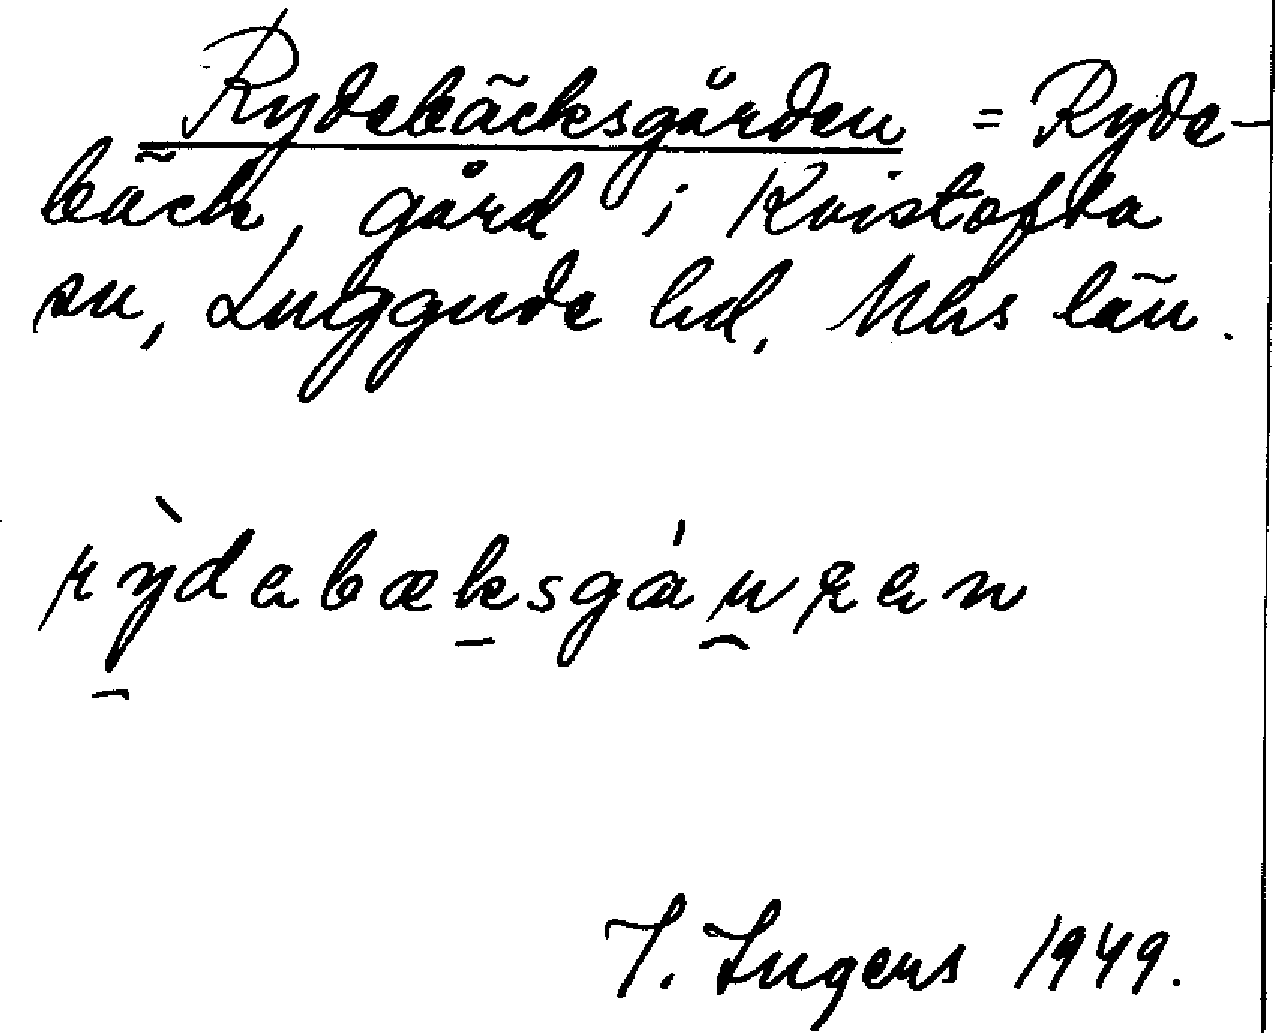 Rydebäcksgården = Ryde-
bäck, gård i Kvistofta
sn, Luggude hd, Mhs län.
rỳdebæksgáu̯ʀen
I. Ingers 1949.